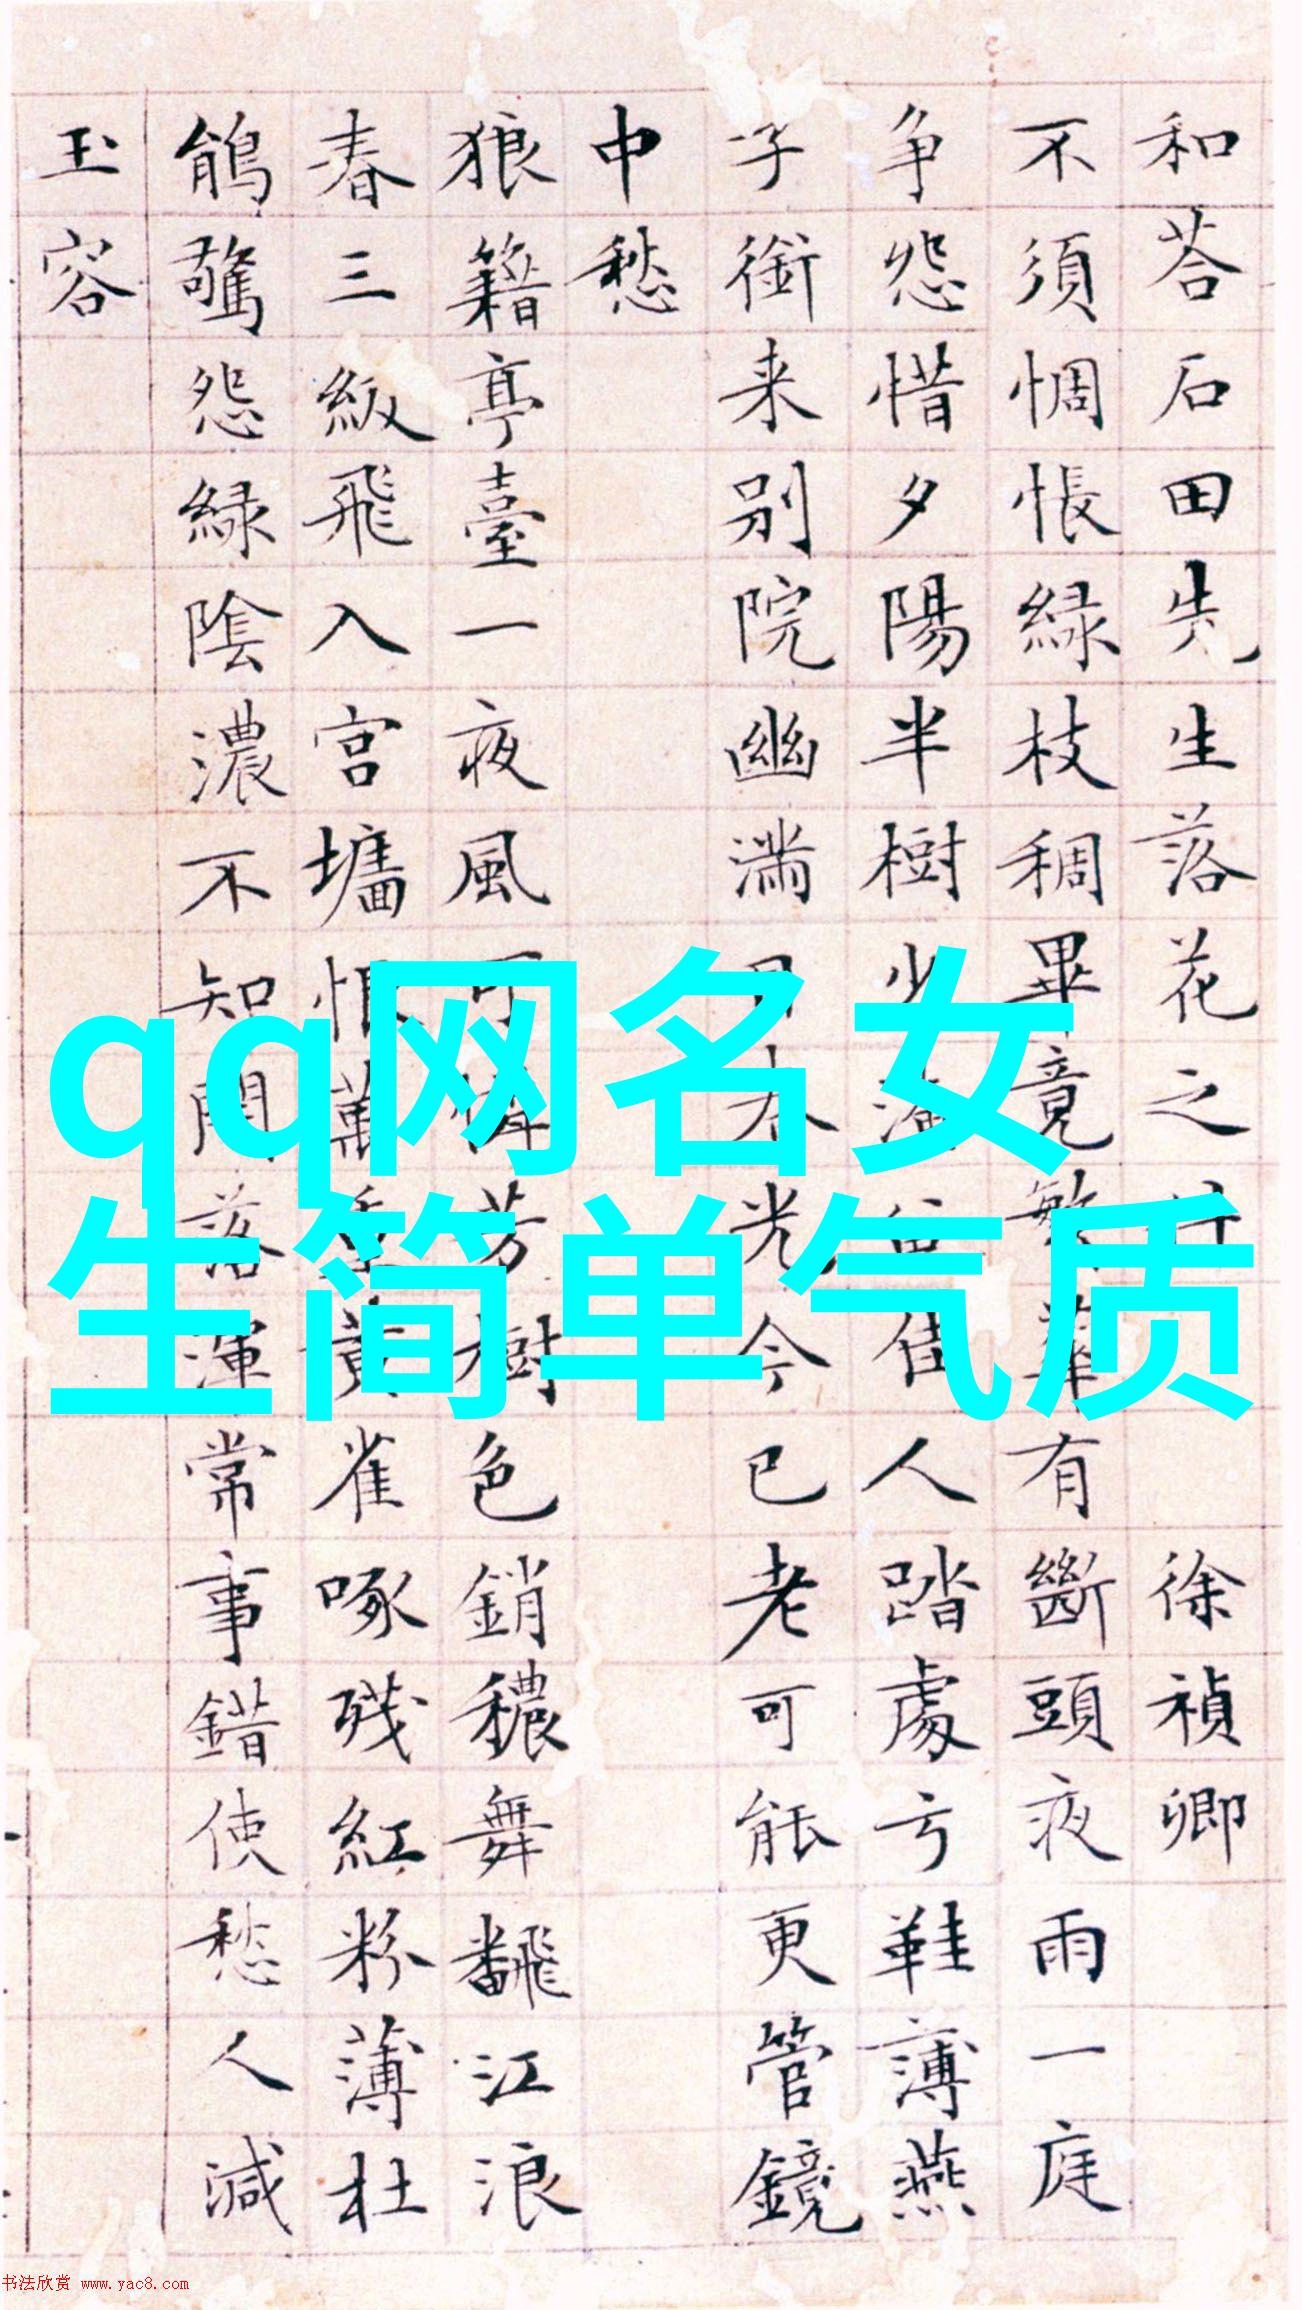 和荅石田先生落花之什 徐禎卿
不須惆悵緑枝稠畢竟繁華有斷頭夜雨一庭
争怨惜夕陽半樹少淹留佳人踏處弓鞋薄燕
子銜来别院幽滿光今已老可能更管鏡
中愁
狼籍亭臺一夜風可憐芳樹色銷穠舞飜江浪
春三級飛入宮墻恨萬重黄雀啄殘紅粉薄杜
鵑驚怨緑陰濃不知閑落渾常事錯使愁人減
玉容
qq网名女
生简单气质
书法欣赏 www.yac8.com